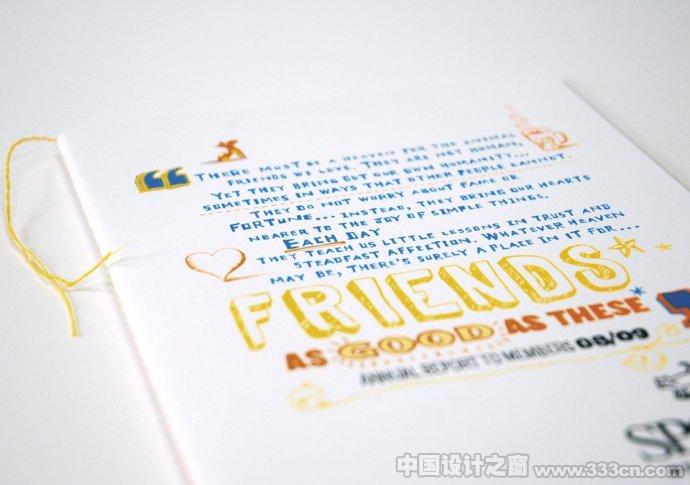 THERE MUST BE A HEAVEN FOR THE ANIMAL
FRIENDS WE LOVE. THEY ARE NOT HUMAN,
YET THEY BRING OUT OUR OWN HUMANITY...
SOMETIMES IN WAYS THAT OTHER PEOPLE CANNOT.
THEY DO NOT WORRY ABOUT FAME OR
FORTUNE... INSTEAD, THEY BRING OUR HEARTS
NEARER TO THE JOY OF SIMPLE THINGS.
EACH DAY
THEY TEACH US LITTLE LESSONS IN TRUST AND
STEADFAST AFFECTION. WHATEVER HEAVEN
MAY BE, THERE'S SURELY A PLACE IN IT FOR...
FRIENDS
AS GOOD AS THESE
ANNUAL REPORT TO MEMBERS 08/09
SP
中国设计之窗 www.333cn.com